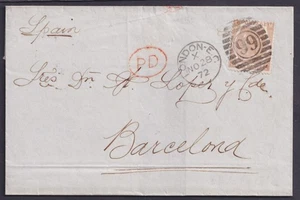 Spain
PD
LONDON-E.C
X
NO 28
72
99
Sres Dn A. Lopez y Ce
Barcelona